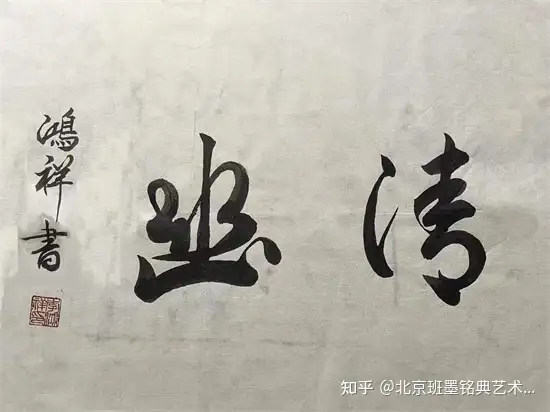 清幽
鸿祥書
知乎 @北京班墨铭典艺术...